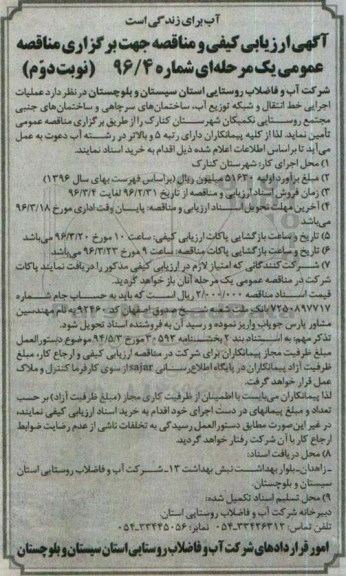 آب برای زندگی است
آگهی ارزیابی کیفی و مناقصه جهت برگزاری مناقصه
عمومی یک مرحله‌ای شماره ۹۶/۴ (نوبت دوّم)
شرکت آب و فاضلاب روستایی استان سیستان و بلوچستان در نظر دارد عملیات
اجرایی خط انتقال و شبکه توزیع آب، ساختمان‌های سرچاهی و ساختمان‌های جنبی
مجتمع روستایی تکمبکان شهرستان کنارک را از طریق برگزاری مناقصه عمومی
تأمین نماید. لذا از کلیه پیمانکاران دارای رتبه ۵ و بالاتر در رشته آب دعوت به عمل
می‌آید تا براساس اطلاعات اعلام شده ذیل اقدام به خرید اسناد نمایند.
۱) محل اجرای کار: شهرستان کنارک
۲) مبلغ برآورد اولیه ۵۱۶۳۰ میلیون ریال (براساس فهرست بهای سال ۱۳۹۶)
۳) زمان فروش اسناد ارزیابی و مناقصه از تاریخ ۹۶/۲/۳۱ لغایت ۹۶/۳/۴
۴) آخرین مهلت تحویل اسناد ارزیابی و مناقصه: پایان وقت اداری مورخ ۹۶/۳/۱۸
می‌باشد
۵) تاریخ و ساعت بازگشایی پاکات ارزیابی کیفی: ساعت ۱۰ مورخ ۹۶/۳/۲۰ می‌باشد
۶) تاریخ و ساعت بازگشایی پاکات مناقصه: ساعت ۹ مورخ ۹۶/۳/۲۳ می‌باشد
۷) شرکت کنندگانی که امتیاز لازم در ارزیابی کیفی مذکور را دریافت نمایند پاکات
شرکت در مناقصه عمومی یک مرحله آنان باز خواهد گردید.
قیمت اسناد مناقصه ۲/۰۰۰/۰۰۰ ریال است که باید به حساب جام شماره
۷۲۵۰۸۹۷۷۱۷ بانک ملت شعبه شیخ صدوق اصفهان کد ۹۲۴۶۰ به نام مهندسین
مشاور پارس جویاب واریز نموده و رسید آن به فروشنده اسناد تحویل شود.
تذکر مهم: به استناد بند ۲ بخشنامه ۳۰۵۹۳ مورخ ۹۴/۵/۳ موضوع دستورالعمل
مبلغ ظرفیت مجاز پیمانکاران برای شرکت در مناقصه ارزیابی کیفی و ارجاع کار، مبلغ
ظرفیت آزاد پیمانکاران در پایگاه اطلاع‌رسانی sajar از سوی کارفرما کنترل و ملاک
عمل قرار خواهد گرفت.
لذا پیمانکاران می‌بایست با اطمینان از ظرفیت کاری مجاز (مبلغ ظرفیت آزاد) بر حسب
تعداد و مبلغ پیمانهای در دست اجرای خود اقدام به خرید اسناد ارزیابی کیفی نمایند،
در غیر این صورت مطابق دستورالعمل رسیدگی به تخلفات ناشی از عدم رضایت ضوابط
ارجاع کار با آن شرکت رفتار خواهد گردید.
۸) محل دریافت اسناد:
ـ زاهدان ـ بلوار بهداشت نبش بهداشت ۱۳ ـ شرکت آب و فاضلاب روستایی استان
سیستان و بلوچستان
۹) محل تسلیم اسناد تکمیل شده:
دبیرخانه شرکت آب و فاضلاب روستایی استان
تلفن تماس: ۳۳۴۲۶۳۱۲ـ۰۵۴ نمابر: ۳۳۴۳۵۰۵۶ـ۰۵۴
امور قراردادهای شرکت آب و فاضلاب روستایی استان سیستان و بلوچستان